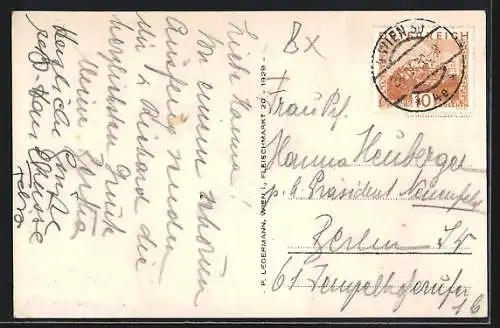 Bx
Lieb Hanna!
Von einem schönen
Ausflug senden
dir u. Richard die
herzlichsten Grüße
Deine Bertha
Herzliche Grüße
P. LEDERMANN, WIEN I., FLEISCHMARKT 20 - 1929 -
WIEN 50
ÖSTERREICH
10
Frau Prf.
Hanna Heuberger
p. A. Präsident Neuenfeld
Berlin SW
61 Tempelhoferufer
16